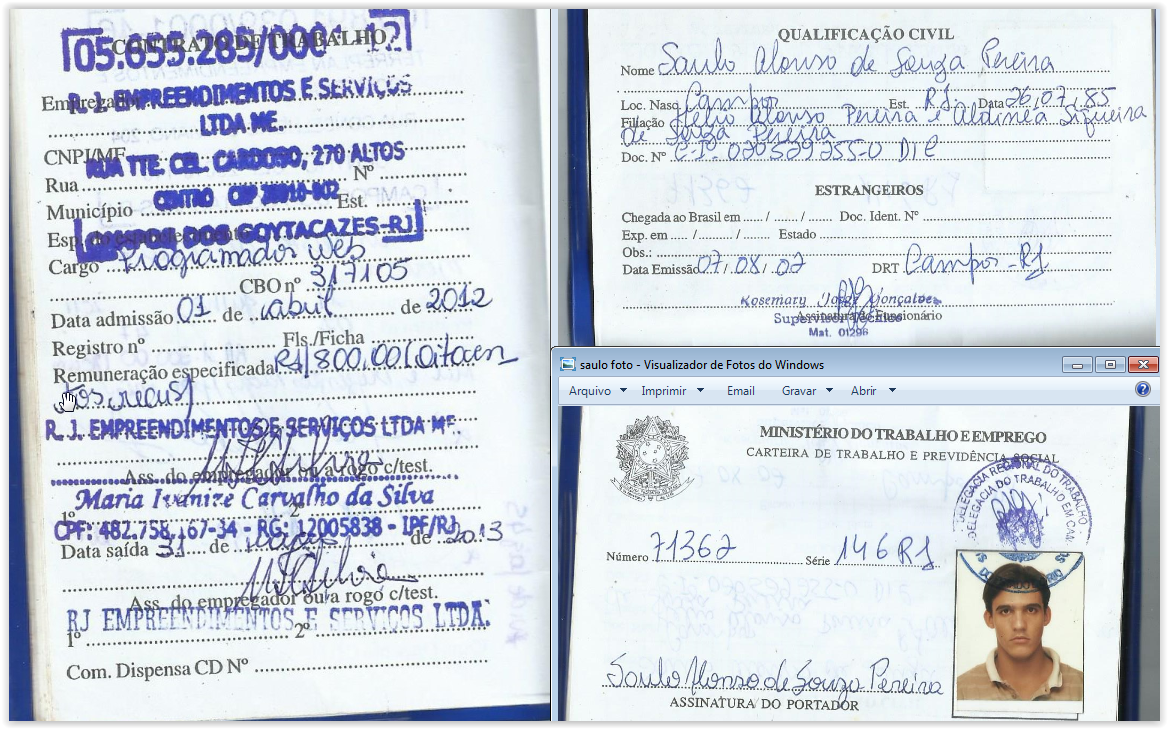 CONTRATO DE TRABALHO
05.655.285/0001-12
Empregador
R. J. EMPREENDIMENTOS E SERVIÇOS
LTDA ME.
CNPJ/MF
RUA TTE. CEL. CARDOSO, 270 ALTOS
Rua Nº
CENTRO CEP
Município Est.
CAMPOS DOS GOYTACAZES-RJ
Esp. do estabelecimento
Cargo Programador Web
CBO nº 317105
Data admissão 01 de abril de 2012
Registro nº Fls./Ficha
Remuneração especificada
R. J. EMPREENDIMENTOS E SERVIÇOS LTDA ME.
Ass. do empregador ou a rogo c/test.
Maria Ivanize Carvalho da Silva
1º 2º
CPF: 482.758.167-34 - RG: 12005838 - IPF/RJ
Data saída 31 de de 2013
Ass. do empregador ou a rogo c/test.
RJ EMPREENDIMENTOS E SERVIÇOS LTDA.
1º 2º
Com. Dispensa CD Nº
QUALIFICAÇÃO CIVIL
Nome Saulo Alonso de Souza Pereira
Loc. Nasc. Campos Est. RJ Data 26/07/85
Filiação Helio Alonso Pereira e Aldinéa Siqueira
de Souza Pereira
Doc. Nº
ESTRANGEIROS
Chegada ao Brasil em ...... / ...... / ...... Doc. Ident. Nº
Exp. em ...... / ...... / ...... Estado
Obs.:
Data Emissão 07/08/02 DRT Campos-RJ
Rosemary Gonçalves
Assinatura do Funcionário
Supervisor Técnico
Mat. 01296
saulo foto - Visualizador de Fotos do Windows
Arquivo Imprimir Email Gravar Abrir
MINISTÉRIO DO TRABALHO E EMPREGO
CARTEIRA DE TRABALHO E PREVIDÊNCIA SOCIAL
DELEGACIA REGIONAL DO TRABALHO
DELEGACIA DO TRABALHO EM CAM
Número 71362 Série 146 RJ
Saulo Alonso de Souza Pereira
ASSINATURA DO PORTADOR